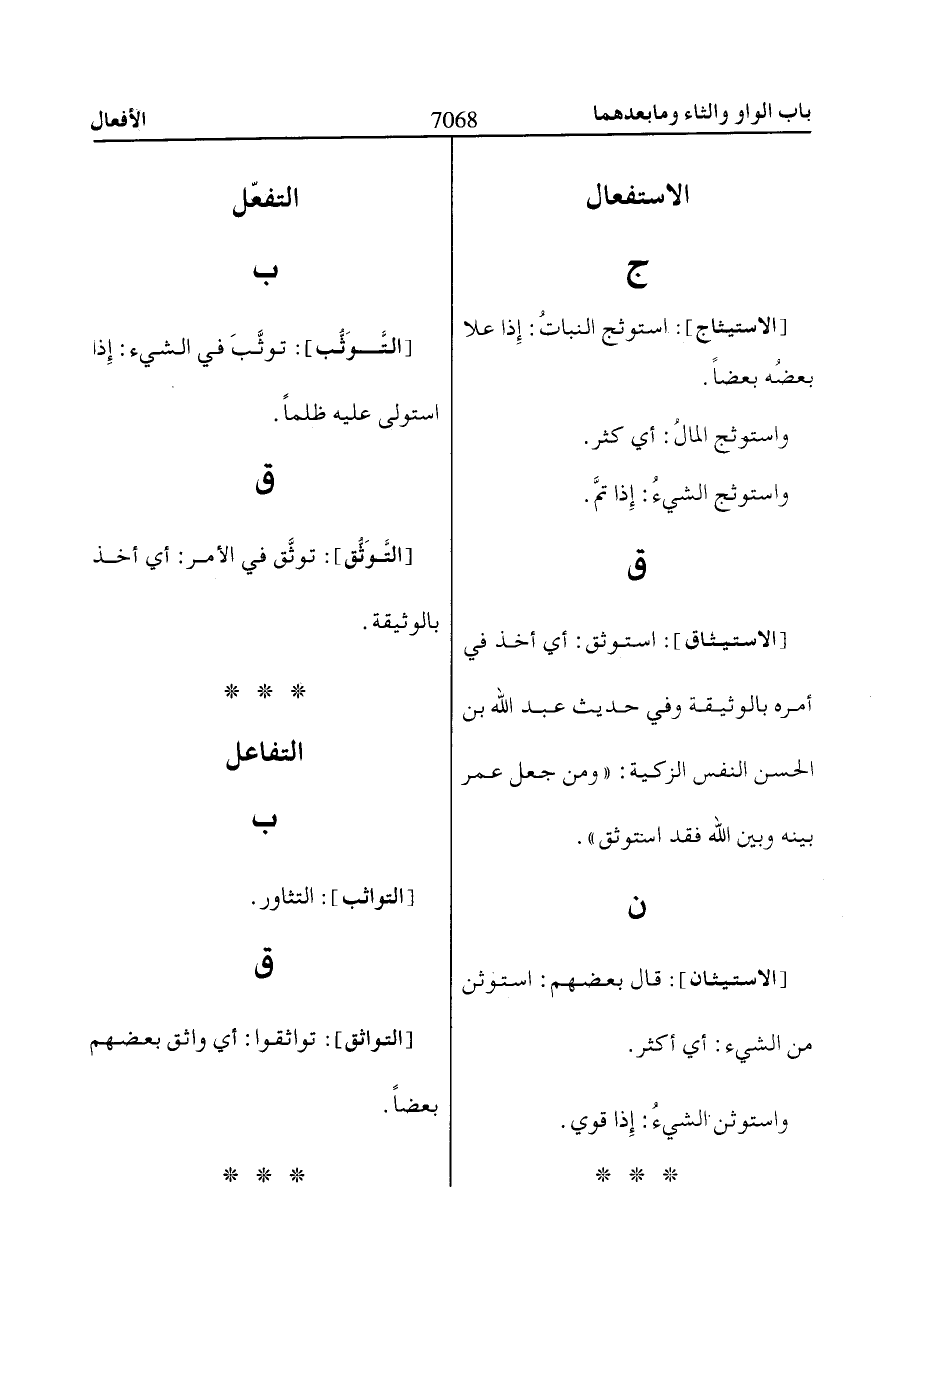 باب الواو والثاء ومابعدهما
7068
الأفعال
الاستفعال
ج
[الاستيثاج]: استوثج النباتُ: إذا علا
بعضُه بعضاً.
واستوثج المالُ: أي كثر.
واستوثج الشيءُ: إذا تمَّ.
ق
[الاستيثاق]: استوثق: أي أخذ في
أمره بالوثيقة وفي حديث عبد الله بن
الحسن النفس الزكية: «ومن جعل عمر
بينه وبين الله فقد استوثق».
ن
[الاستيثان]: قال بعضهم: استوثن
من الشيء: أي أكثر.
واستوثن الشيءُ: إذا قوي.
* * *
التفعّل
ب
[التَّوَثُّب]: توثَّبَ في الشيء: إذا
استولى عليه ظلماً.
ق
[التَّوَثُّق]: توثَّق في الأمر: أي أخذ
بالوثيقة.
* * *
التفاعل
ب
[التواثب]: التثاور.
ق
[التواثق]: تواثقوا: أي واثق بعضهم
بعضاً.
* * *